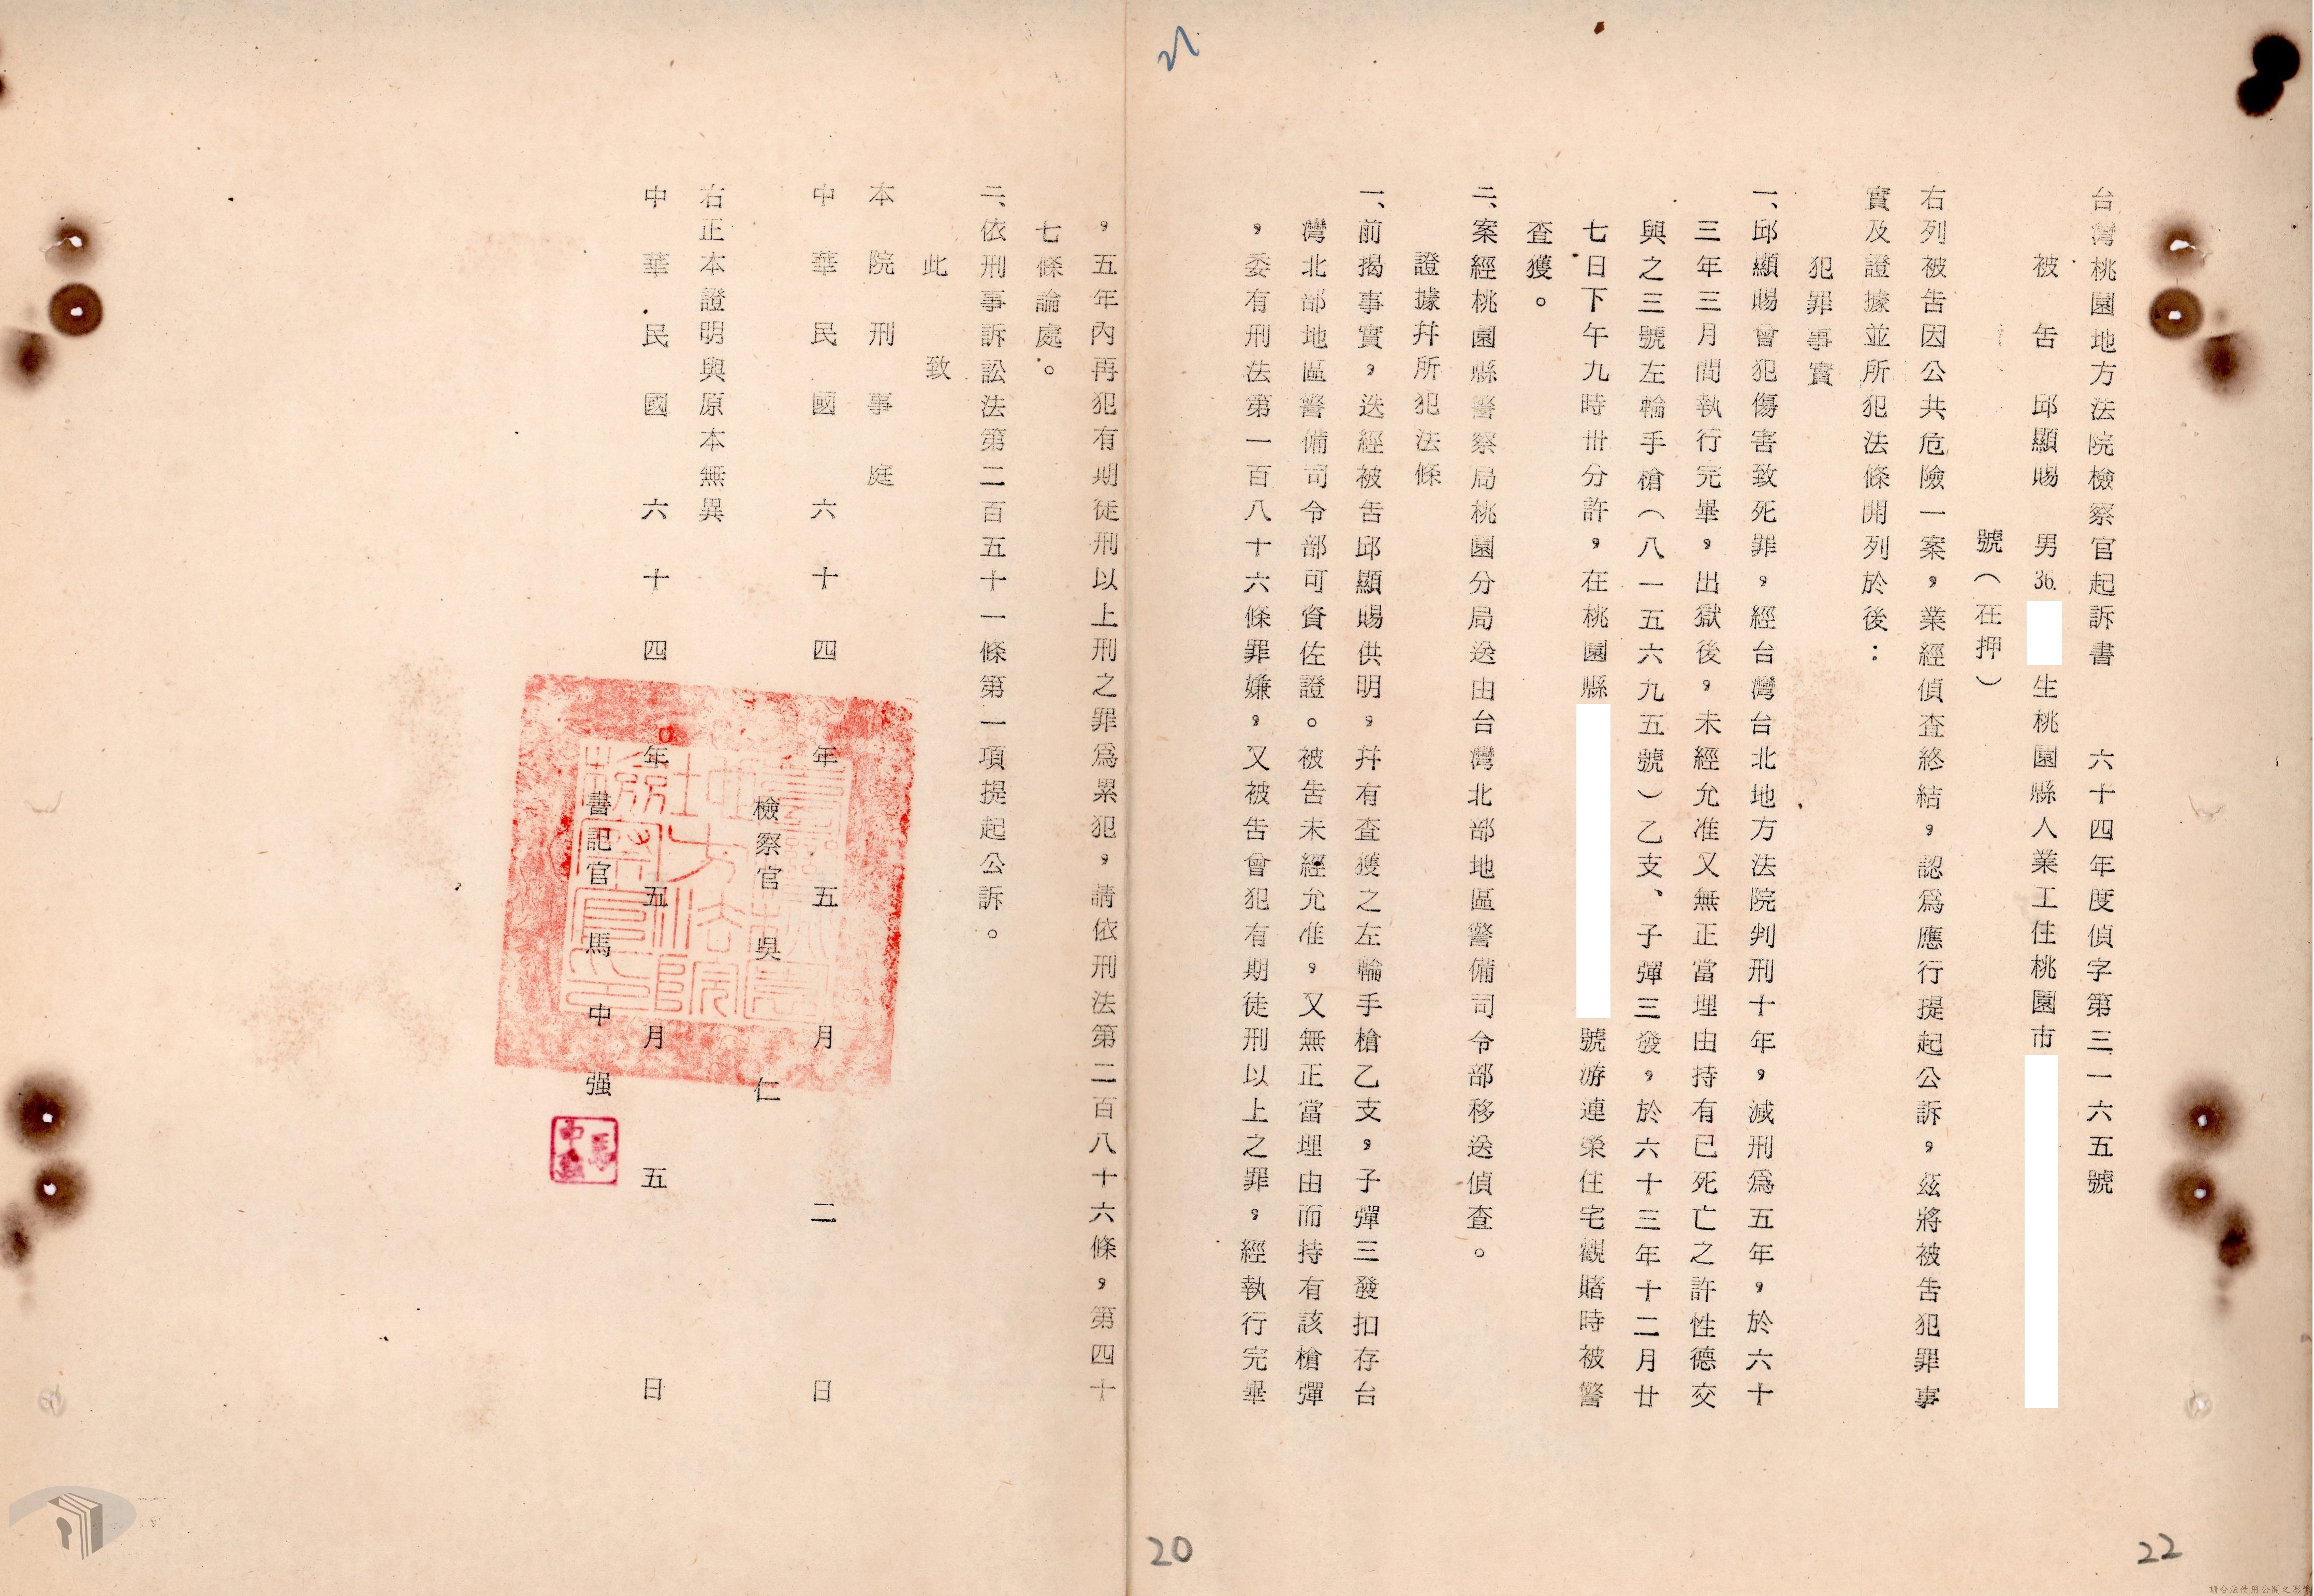 台灣桃園地方法院檢察官起訴書　六十四年度偵字第三一六五號
被告　邱顯賜　男　36.　生桃園縣人業工住桃園市
號（在押）
右列被告因公共危險一案，業經偵查終結，認爲應行提起公訴，茲將被告犯罪事
實及證據並所犯法條開列於後：
犯罪事實
一、邱顯賜曾犯傷害致死罪，經台灣台北地方法院判刑十年，減刑爲五年，於六十
三年三月間執行完畢，出獄後，未經允准又無正當理由持有已死亡之許性德交
與之三號左輪手槍（八一五六九五號）乙支、子彈三發，於六十三年十二月廿
七日下午九時卅分許，在桃園縣　號游連榮住宅觀賭時被警
查獲。
二、案經桃園縣警察局桃園分局送由台灣北部地區警備司令部移送偵查。
證據幷所犯法條
一、前揭事實，迭經被告邱顯賜供明，幷有查獲之左輪手槍乙支，子彈三發扣存台
灣北部地區警備司令部可資佐證。被告未經允准，又無正當理由而持有該槍彈
，委有刑法第一百八十六條罪嫌，又被告曾犯有期徒刑以上之罪，經執行完畢
，五年內再犯有期徒刑以上刑之罪爲累犯，請依刑法第二百八十六條，第四十
七條論處。
二、依刑事訴訟法第二百五十一條第一項提起公訴。
此　致
本院刑事庭
中華民國六十四年五月二日
檢察官　吳　仁
右正本證明與原本無異
中華民國六十四年五月五日
書記官　馬中强
20
22
請合法使用公開之影像